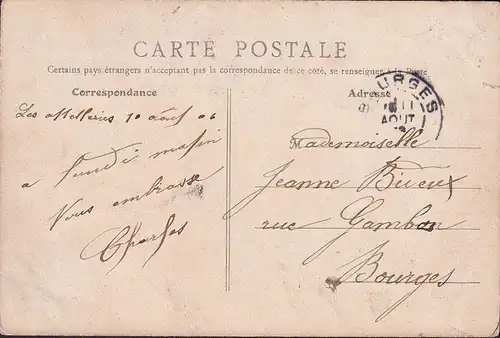 CARTE POSTALE
Certains pays étrangers n'acceptant pas la correspondance de ce côté, se renseigner à la Poste
Correspondance
Adresse
BOURGES
11
AOUT
Les 10 août 06
a lundi matin
Vous embrasse
Charles
Mademoiselle
Jeanne
rue Gambon
Bourges